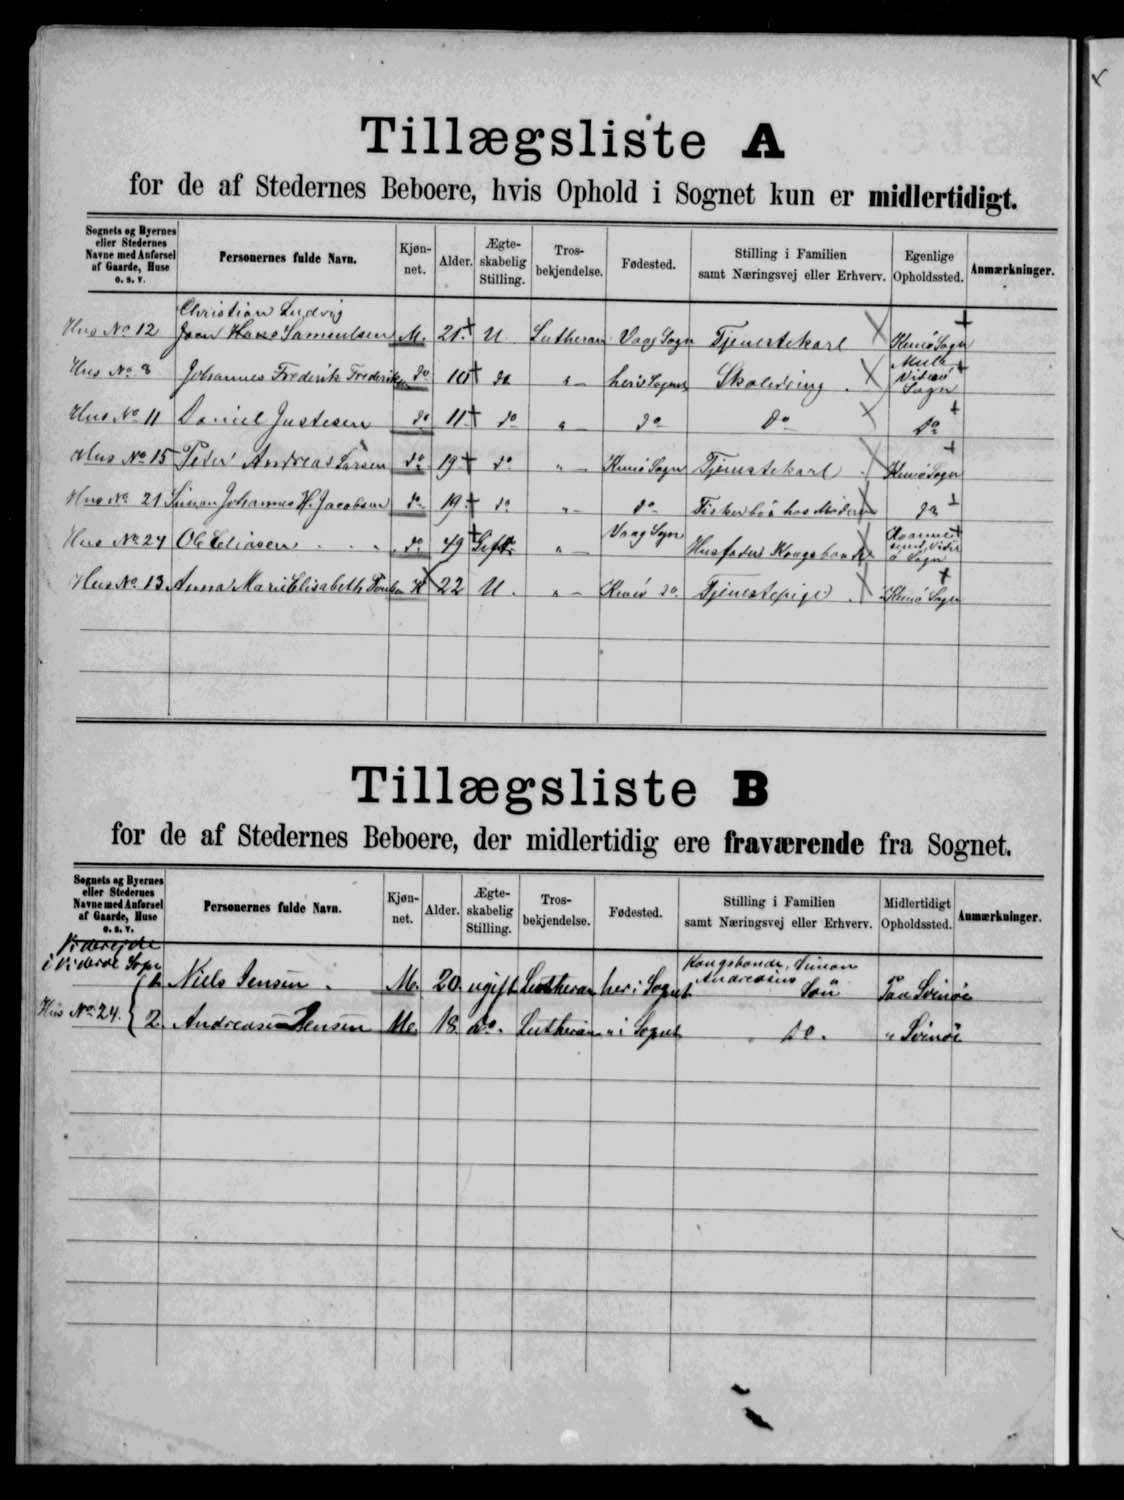 Tillægsliste A
for de af Stedernes Beboere, hvis Ophold i Sognet kun er midlertidigt.
Sognets og Byernes eller Stedernes Navne med Anførsel af Gaarde, Huse o. s. v. Personernes fulde Navn. Kjøn- net. Alder. Ægte- skabelig Stilling. Tros- bekjendelse. Fødested. Stilling i Familien samt Næringsvej eller Erhverv. Egenlige Opholdssted. Anmærkninger.
Christian Ludvig
Hus No 12 Joen Hans Samuelsen M. 21 U. Lutheran Vaag Sogn Tjenestekarl Sogn
Hus No 3 Johannes Frederik do do " Skoledreng Viderø Sogn
Hus No 11 Daniel Justesen do 11 do " do Do Do
Hus No 15 Peder Andreas Larsen do 19 do " Sogn Tjenestekarl Sogn
Hus No 21 Simon Johannes H. Jacobsen do 19 do " do Fisker hos Moderen do
Hus No 24 Ole Eliasen do 49 Gift " Vaag Sogn Husfader Kongsbonde Sogn
Hus No 13 Anna Marie Elisabeth K 22 U. " Tjenestepige Sogn
Tillægsliste B
for de af Stedernes Beboere, der midlertidig ere fraværende fra Sognet.
Sognets og Byernes eller Stedernes Navne med Anførsel af Gaarde, Huse o. s. v. Personernes fulde Navn. Kjøn- net. Alder. Ægte- skabelig Stilling. Tros- bekjendelse. Fødested. Stilling i Familien samt Næringsvej eller Erhverv. Midlertidigt Opholdssted. Anmærkninger.
Viderejde
i Viderø Sogn Kongsbonde, Simon
1. Niels Jensen M. 20 ugift Lutheran her i Sognet Andreasens Søn Paa Svinøe
Hus No 24. 2. Andreas Jensen M. 18 do. Lutheran " i Sognet do. " Svinöe